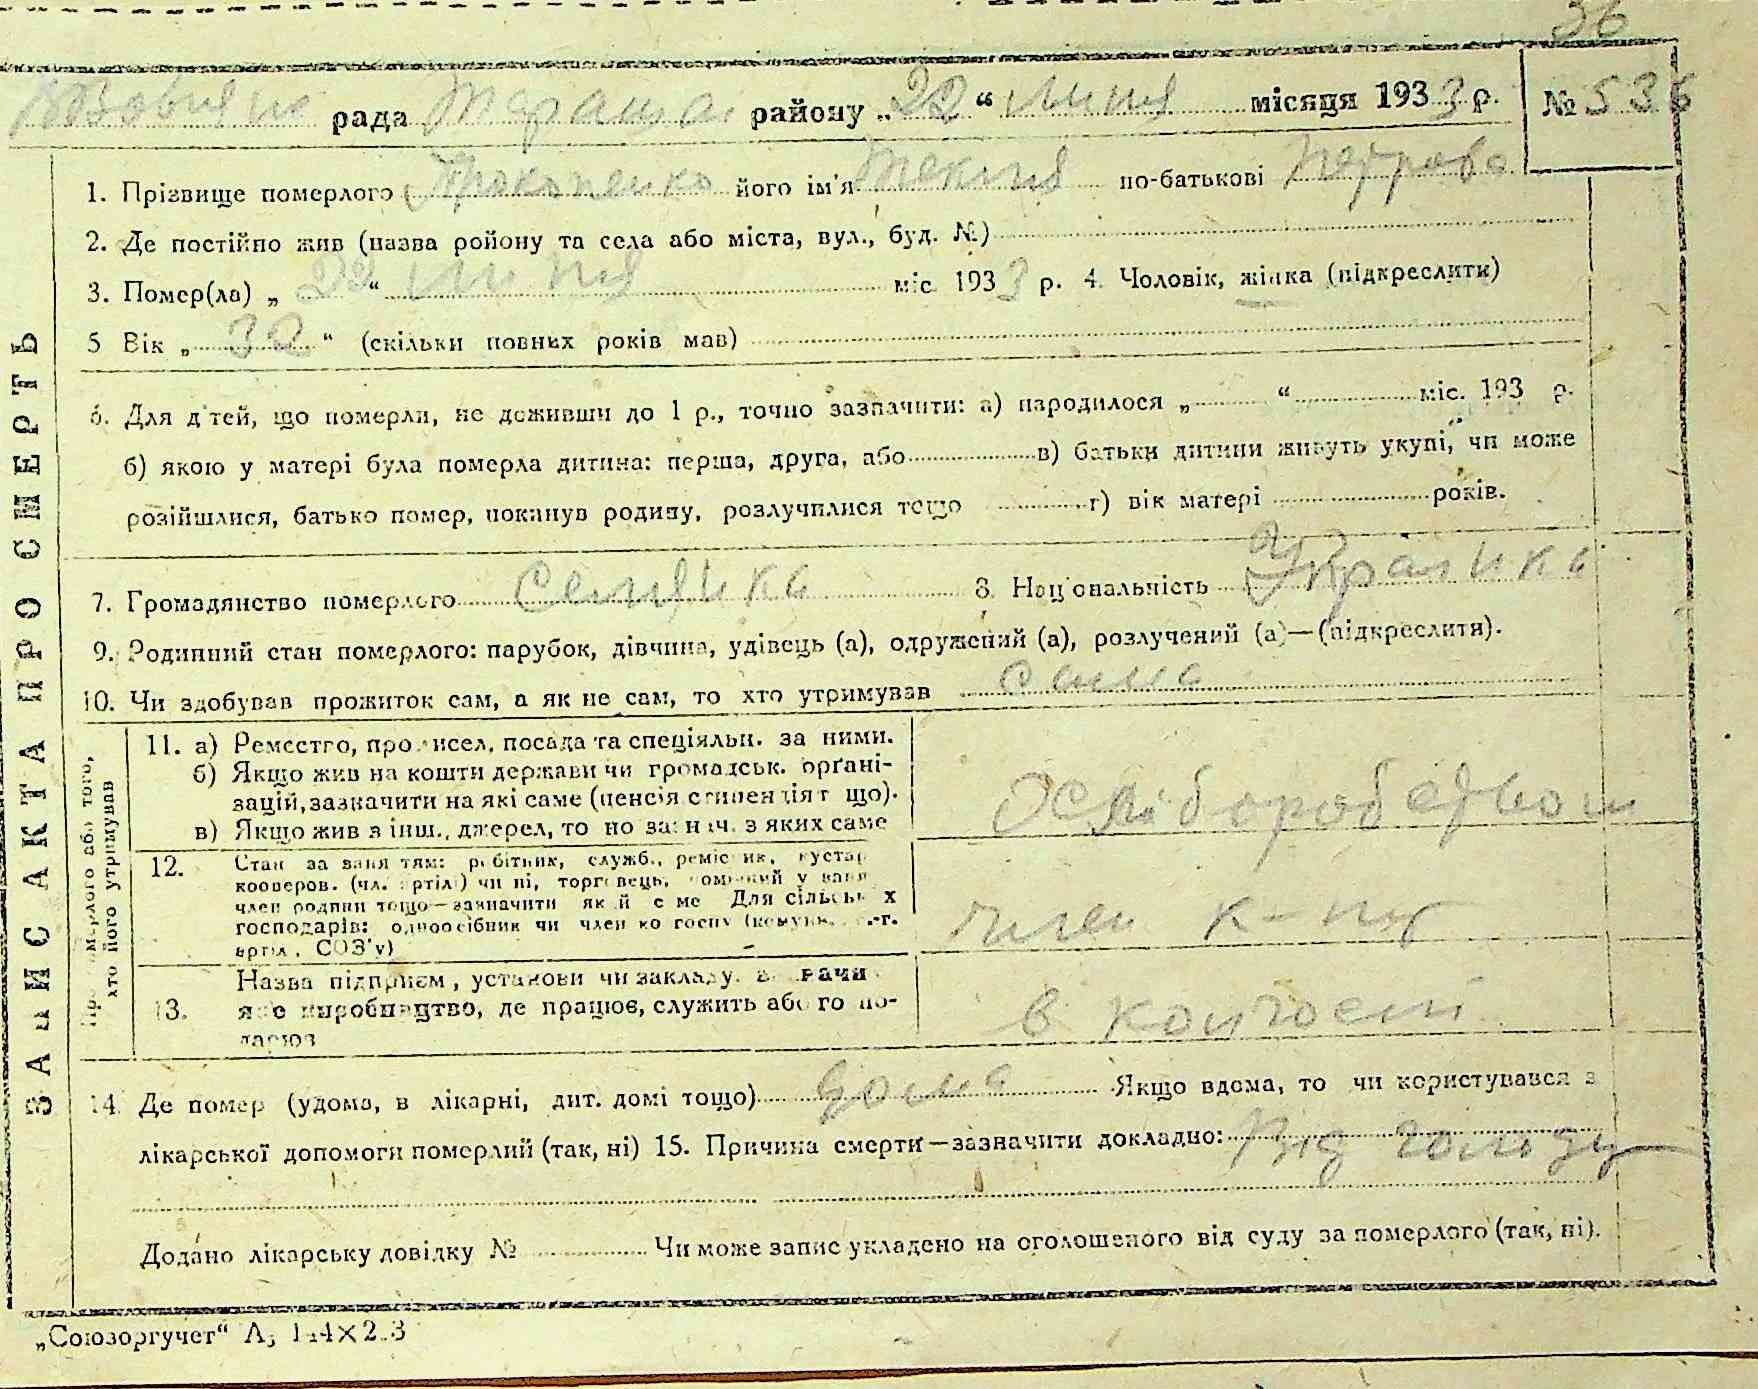 36
рада Тараща району „22“ липня місяця 1933 р. № 536
1. Прізвище померлого Прокопенко його ім'я Текля по-батькові Петрова
2. Де постійно жив (назва ройону та села або міста, вул., буд. №)
3. Помер(ла) „22“ липня міс 1933 р. 4. Чоловік, жінка (підкреслити)
5 Вік „32“ (скільки повних років мав)
6. Для дітей, що померли, не доживши до 1 р., точно зазначити: а) народилося „ “ міс. 193 р.
б) якою у матері була померла дитина: перша, друга, або в) батьки дитини живуть укупі, чи може
розійшлися, батько помер, покинув родину, розлучилися тощо г) вік матері років.
7. Громадянство померлого селянка 8. Національність Українка
9. Родинний стан померлого: парубок, дівчина, удівець (а), одружений (а), розлучений (а)—(підкреслити).
10. Чи здобував прожиток сам, а як не сам, то хто утримував сама
ЗАПИС АКТА ПРО СМЕРТЬ
Про померлого або того,
хто його утримував
11. а) Ремество, промисел, посада та спеціяльн. за ними.
б) Якщо жив на кошти держави чи громадськ. орґані-
зацій, зазначити на які саме (пенсія стипендія т що).
в) Якщо жив з інш., джерел, то по зазнач. з яких саме
хліборобством
12. Стан за заняттям: робітник, служб., ремісник, кустар
кооперов. (чл. артілі) чи ні, торговець,
член родини тощо—зазначити який саме Для сільських
господарів: одноосібник чи член
артіл., СОЗ'у)
член к-пу
13. Назва підприєм., установи чи закладу.
яке виробництво, де працює, служить або го по-
дарює
в колгоспі
14. Де помер (удома, в лікарні, дит. домі тощо) дома Якщо вдома, то чи користувався з
лікарської допомоги померлий (так, ні) 15. Причина смерти—зазначити докладно: Від голоду
Додано лікарську довідку № Чи може запис укладено на оголошеного від суду за померлого (так, ні).
„Союзоргучет“